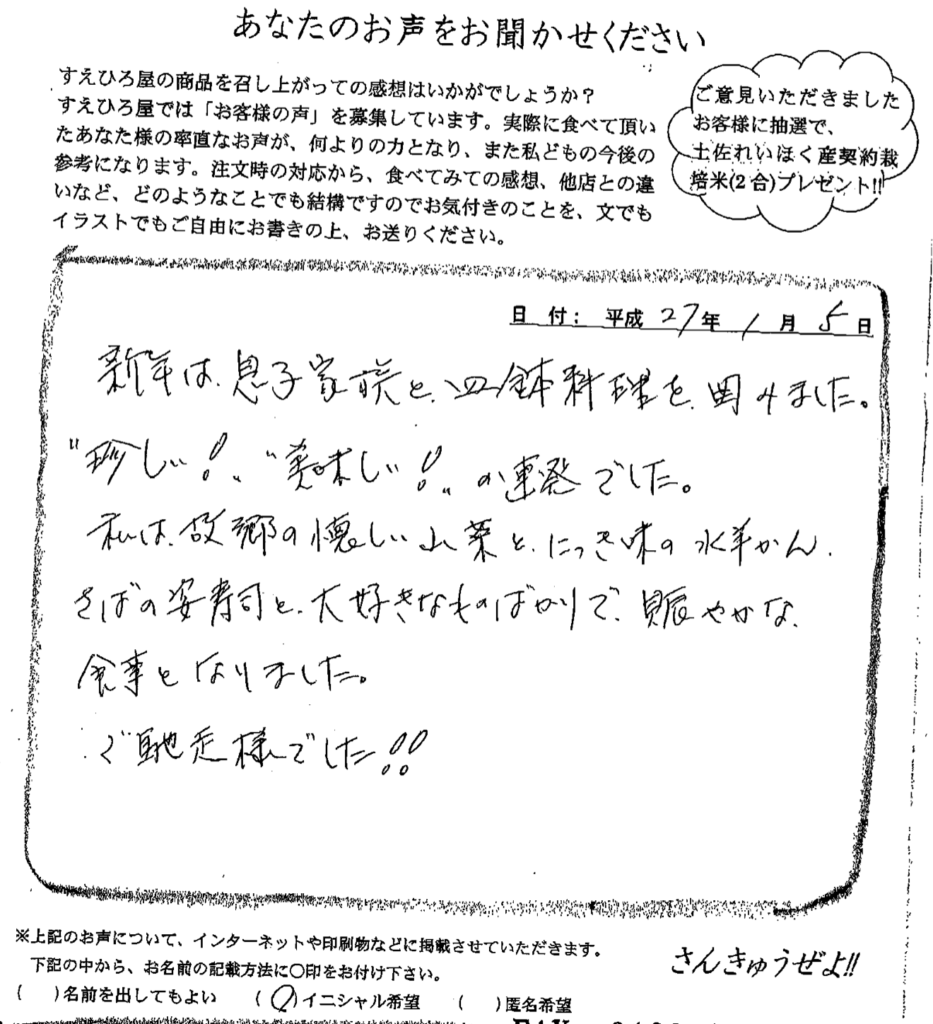 あなたのお声をお聞かせください
すえひろ屋の商品を召し上がっての感想はいかがでしょうか?
すえひろ屋では「お客様の声」を募集しています。実際に食べて頂い
たあなた様の率直なお声が、何よりの力となり、また私どもの今後の
参考になります。注文時の対応から、食べてみての感想、他店との違
いなど、どのようなことでも結構ですのでお気付きのことを、文でも
イラストでもご自由にお書きの上、お送りください。
ご意見いただきました
お客様に抽選で、
土佐れいほく産契約栽
培米(2合)プレゼント!!
日 付: 平成 27年 1月 5日
新年は、息子家族と、皿鉢料理を、囲みました。
"珍しい!"、"美味しい!"の連発でした。
私は、故郷の懐しい山菜と、にっき味の水羊かん、
さばの姿寿司と、大好きなものばかりで、賑やかな、
食事となりました。
ご馳走様でした!!
※上記のお声について、インターネットや印刷物などに掲載させていただきます。
下記の中から、お名前の記載方法に○印をお付け下さい。
( )名前を出してもよい (○)イニシャル希望 ( )匿名希望
さんきゅうぜよ!!